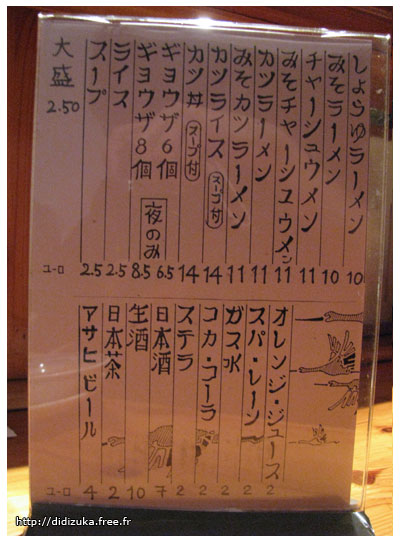 しょうゆラーメン 10
みそラーメン 10
チャーシュウメン 11
みそチャーシュウメン 11
カツラーメン 11
みそカツラーメン 11
カツライス スープ付 14
カツ丼 スープ付 14
ギョウザ6個 6.5
ギョウザ8個 8.5
夜のみ
ライス 2.5
スープ 2.5
大盛 2.50
ユーロ
オレンジ・ジュース 2
スパ・レーン 2
ガス水 2
コカ・コーラ 2
ステラ 2
日本酒 7
生酒 10
日本茶 2
アサヒビール 4
ユーロ
http://didizuka.free.fr